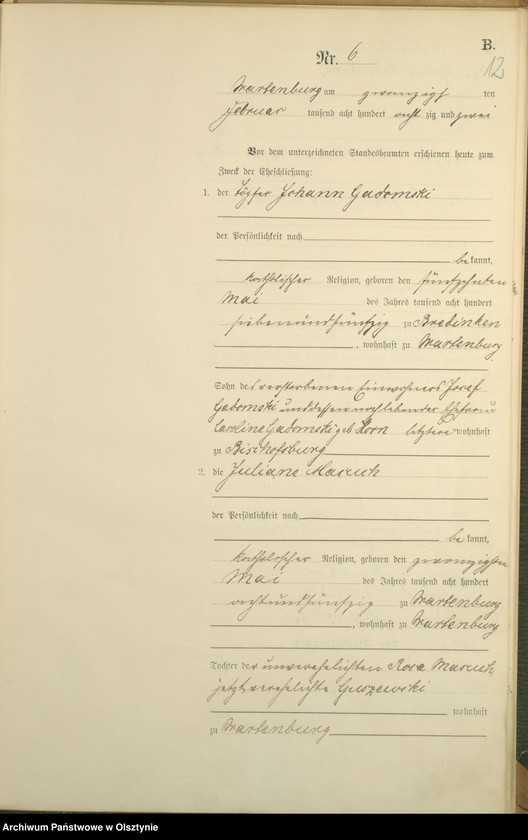 B.
Nr. 6
12
Wartenburg am zwanzigs ten
Februar tausend acht hundert acht zig und zwei
Vor dem unterzeichneten Standesbeamten erschienen heute zum
Zweck der Eheschließung:
1. der Töpfer Johann Gadomski
der Persönlichkeit nach
be kannt,
katholischer Religion, geboren den fünfzehnten
Mai des Jahres tausend acht hundert
siebenundfünfzig zu Bredinken
, wohnhaft zu Wartenburg
Sohn des verstorbenen Einwohners Josef
Gadomski und dessen noch lebender Ehefrau
Caroline Gadomski geb Korn letztere wohnhaft
zu Bischofsburg
2. die Juliane Masuch
der Persönlichkeit nach
be kannt,
katholischer Religion, geboren den zwanzigsten
Mai des Jahres tausend acht hundert
achtundfünfzig zu Wartenburg
, wohnhaft zu Wartenburg
Tochter der unverehelichten Rosa Masuch
jetzt verehelichte
wohnhaft
zu Wartenburg
Archiwum Państwowe w Olsztynie